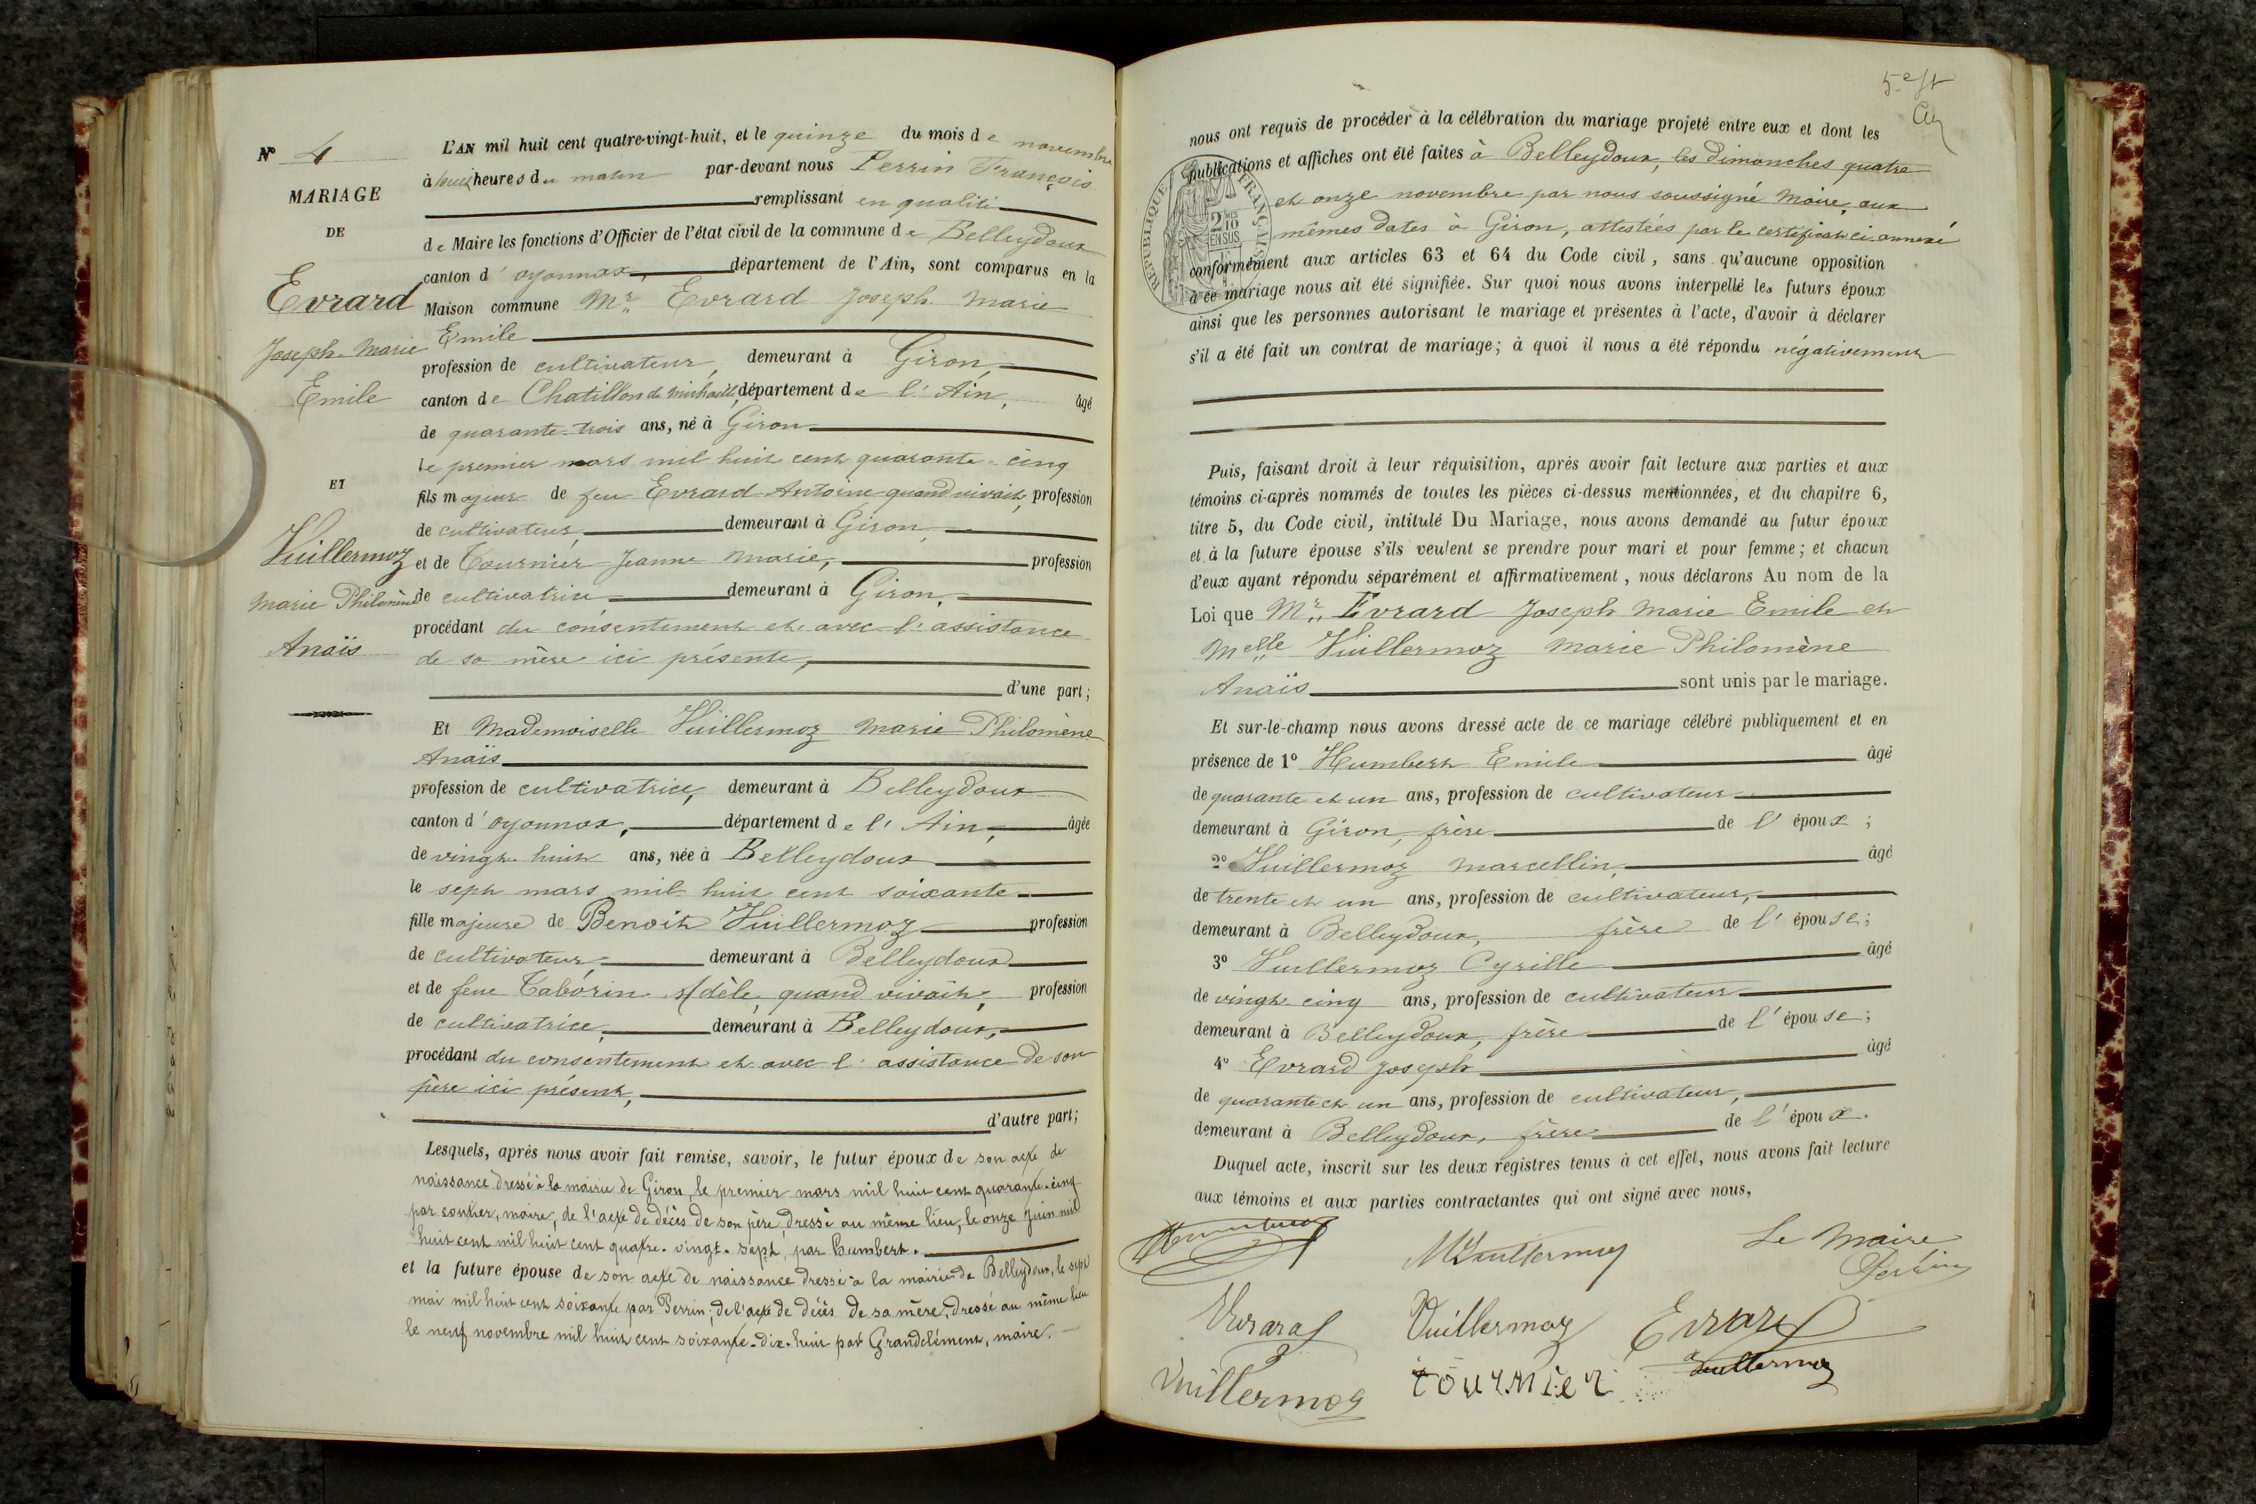 N° 4
MARIAGE
DE
Evrard
Joseph-Marie
Emile
ET
Vuillermoz
Marie Philomène
Anaïs
L'AN mil huit cent quatre-vingt-huit, et le quinze du mois de novembre
à heures du matin par-devant nous Perrin François
remplissant en qualité
de Maire les fonctions d'Officier de l'état civil de la commune de Belleydoux
canton d'oyonnax, département de l'Ain, sont comparus en la
Maison commune Mr. Evrard Joseph Marie
Emile
profession de cultivateur, demeurant à Giron,
canton de Chatillon de Michaille, département de l'Ain, âgé
de quarante-trois ans, né à Giron
le premier mars mil huit cent quarante-cinq
fils majeur de feu Evrard Antoine quand vivait, profession
de cultivateur, demeurant à Giron,
et de Tournier Jeanne Marie, profession
de cultivatrice demeurant à Giron,
procédant du consentement et avec l'assistance
de sa mère ici présente,
d'une part;
Et Mademoiselle Vuillermoz Marie Philomène
Anaïs
profession de cultivatrice, demeurant à Belleydoux
canton d'oyonnax, département de l'Ain, âgée
de vingt-huit ans, née à Belleydoux
le sept mars mil huit cent soixante
fille majeure de Benoit Vuillermoz profession
de cultivateur, demeurant à Belleydoux
et de feue Taborin Adèle, quand vivait, profession
de cultivatrice, demeurant à Belleydoux,
procédant du consentement et avec l'assistance de son
père ici présent,
d'autre part;
Lesquels, après nous avoir fait remise, savoir, le futur époux de son acte de
naissance dressé à la mairie de Giron, le premier mars mil huit cent quarante-cinq
par maire, de l'acte de décès de son père, dressé au même lieu, le onze juin mil
huit cent mil huit cent quatre-vingt-sept, par Humbert.
et la future épouse de son acte de naissance dressé à la mairie de Belleydoux, le sept
mai mil huit cent soixante par Perrin; de l'acte de décès de sa mère, dressé au même lieu
le neuf novembre mil huit cent soixante-dix-huit par Grandclément, maire.
5e ft
nous ont requis de procéder à la célébration du mariage projeté entre eux et dont les
publications et affiches ont été faites à Belleydoux, les dimanches quatre
et onze novembre par nous soussigné Maire, aux
mêmes dates à Giron, attestées par le certificat ci-annexé
RÉPUBLIQUE FRANÇAISE
2/10 EN SUS
conformément aux articles 63 et 64 du Code civil, sans qu'aucune opposition
à ce mariage nous ait été signifiée. Sur quoi nous avons interpellé les futurs époux
ainsi que les personnes autorisant le mariage et présentes à l'acte, d'avoir à déclarer
s'il a été fait un contrat de mariage; à quoi il nous a été répondu négativement
Puis, faisant droit à leur réquisition, après avoir fait lecture aux parties et aux
témoins ci-après nommés de toutes les pièces ci-dessus mentionnées, et du chapitre 6,
titre 5, du Code civil, intitulé Du Mariage, nous avons demandé au futur époux
et à la future épouse s'ils veulent se prendre pour mari et pour femme; et chacun
d'eux ayant répondu séparément et affirmativement, nous déclarons Au nom de la
Loi que Mr. Evrard Joseph Marie Emile et
Melle Vuillermoz Marie Philomène
Anaïs sont unis par le mariage.
Et sur-le-champ nous avons dressé acte de ce mariage célébré publiquement et en
présence de 1° Humbert Emile âgé
de quarante et un ans, profession de cultivateur
demeurant à Giron, frère de l'époux;
2° Vuillermoz Marcellin, âgé
de trente et un ans, profession de cultivateur,
demeurant à Belleydoux, frère de l'épouse;
3° Vuillermoz Cyrille âgé
de vingt-cinq ans, profession de cultivateur
demeurant à Belleydoux, frère de l'épouse;
4° Evrard Joseph âgé
de quarante et un ans, profession de cultivateur,
demeurant à Belleydoux, frère de l'époux.
Duquel acte, inscrit sur les deux registres tenus à cet effet, nous avons fait lecture
aux témoins et aux parties contractantes qui ont signé avec nous,
Humbert M Vuillermoz Le Maire
Perrin
Evrard Vuillermoz Evrard
Vuillermoz tournier Vuillermoz